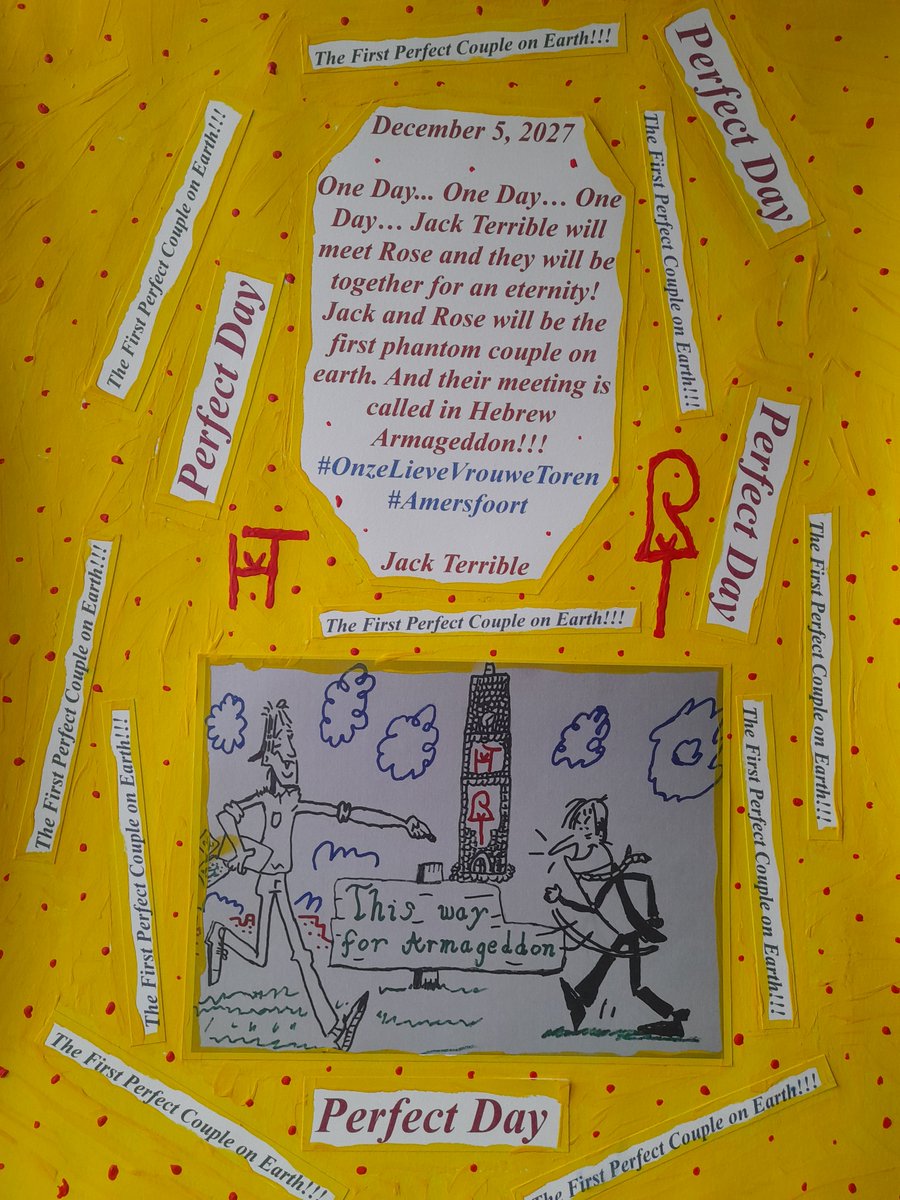 The First Perfect Couple on Earth!!!
Perfect Day
The First Perfect Couple on Earth!!!
December 5, 2027
One Day... One Day… One
Day… Jack Terrible will
meet Rose and they will be
together for an eternity!
Jack and Rose will be the
first phantom couple on
earth. And their meeting is
called in Hebrew
Armageddon!!!
#OnzeLieveVrouweToren
#Amersfoort
Jack Terrible
The First Perfect Couple on Earth!!!
Perfect Day
Perfect Day
The First Perfect Couple on Earth!!!
The First Perfect Couple on Earth!!!
The First Perfect Couple on Earth!!!
The First Perfect Couple on Earth!!!
The First Perfect Couple on Earth!!!
This way
for Armageddon
The First Perfect Couple on Earth!!!
Perfect Day
The First Perfect Couple on Earth!!!